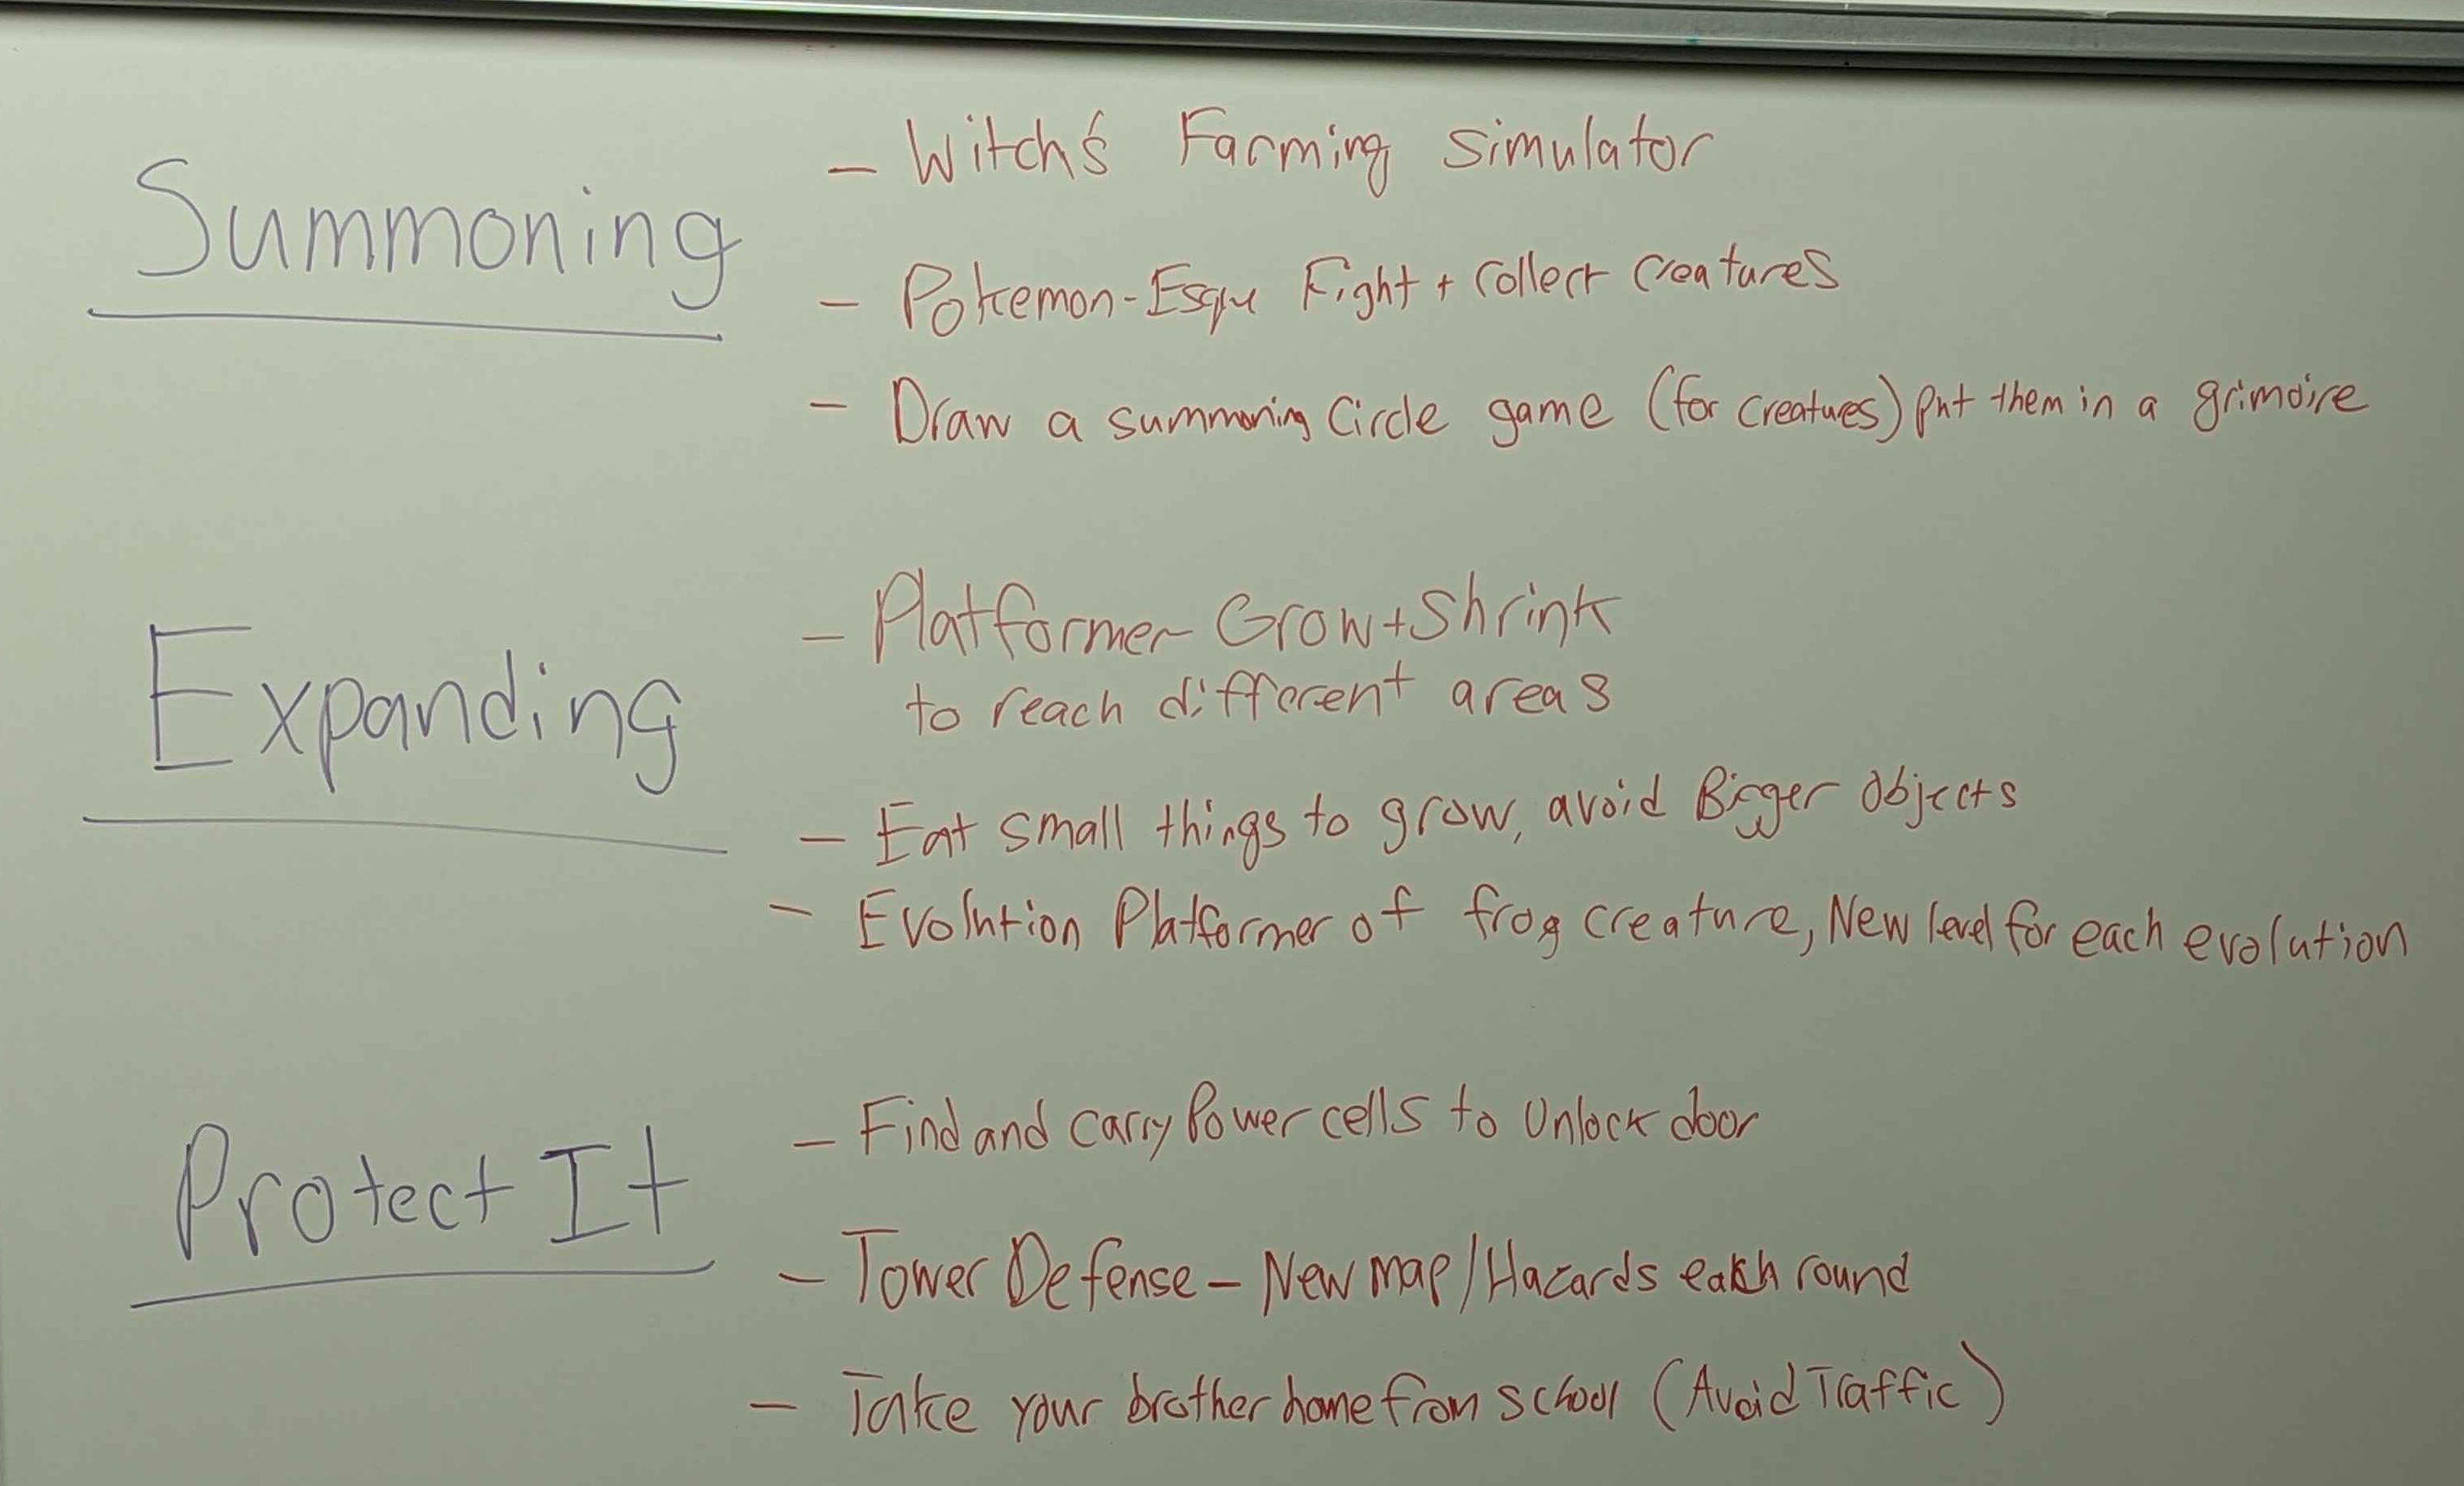 Summoning
- Witch's Farming Simulator
- Pokemon-Esqu Fight + Collect Creatures
- Draw a summoning Circle game (for creatures) put them in a grimoire
Expanding
- Platformer Grow + Shrink
to reach different areas
- Eat small things to grow, avoid Bigger Objects
- Evolution Platformer of frog creature, New level for each evolution
Protect It
- Find and carry Power cells to Unlock door
- Tower Defense - New map/Hazards each round
- Take your brother home from school (Avoid Traffic)